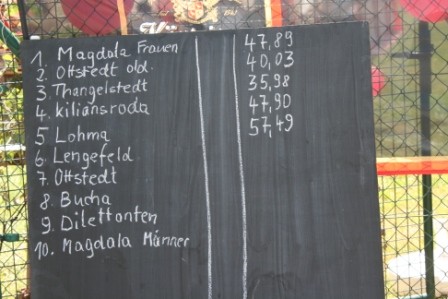 1. Magdala Frauen 47,89
2. Ottstedt old. 40,03
3. Thangelstedt 35,98
4. Kiliansroda 47,90
5. Lohma 57,49
6. Lengefeld
7. Ottstedt
8. Bucha
9. Dilettonten
10. Magdala Männer